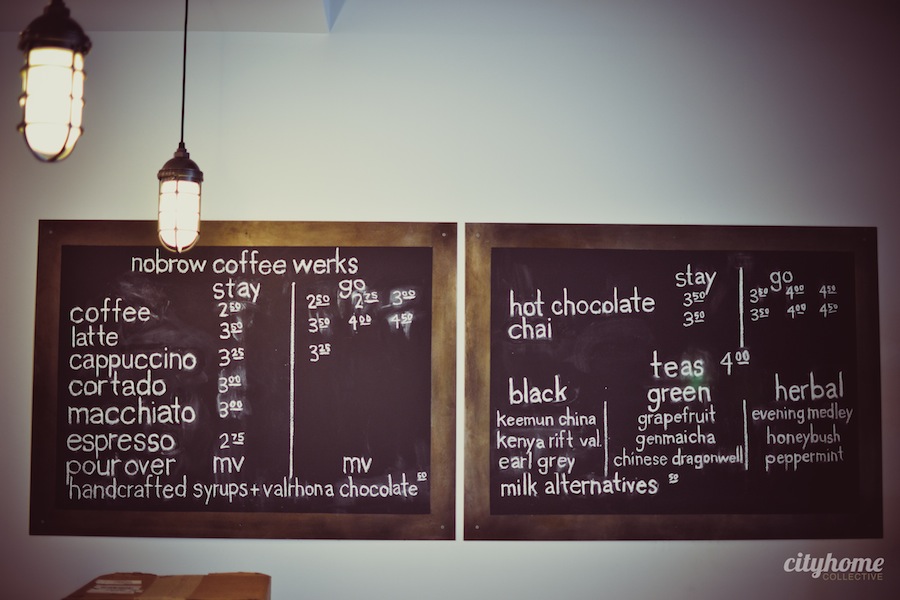 nobrow coffee werks
stay go
coffee 2 50 2 50 2 75 3 00
latte 3 50 3 50 4 00 4 50
cappuccino 3 25 3 25
cortado 3 00
macchiato 3 00
espresso 2 75
pour over mv mv
handcrafted syrups + valrhona chocolate 50
stay go
hot chocolate 3 50 3 50 4 00 4 50
chai 3 50 3 50 4 00 4 50
teas 4 00
black green herbal
keemun china grapefruit evening medley
kenya rift val. genmaicha honeybush
earl grey chinese dragonwell peppermint
milk alternatives 50
cityhome
COLLECTIVE